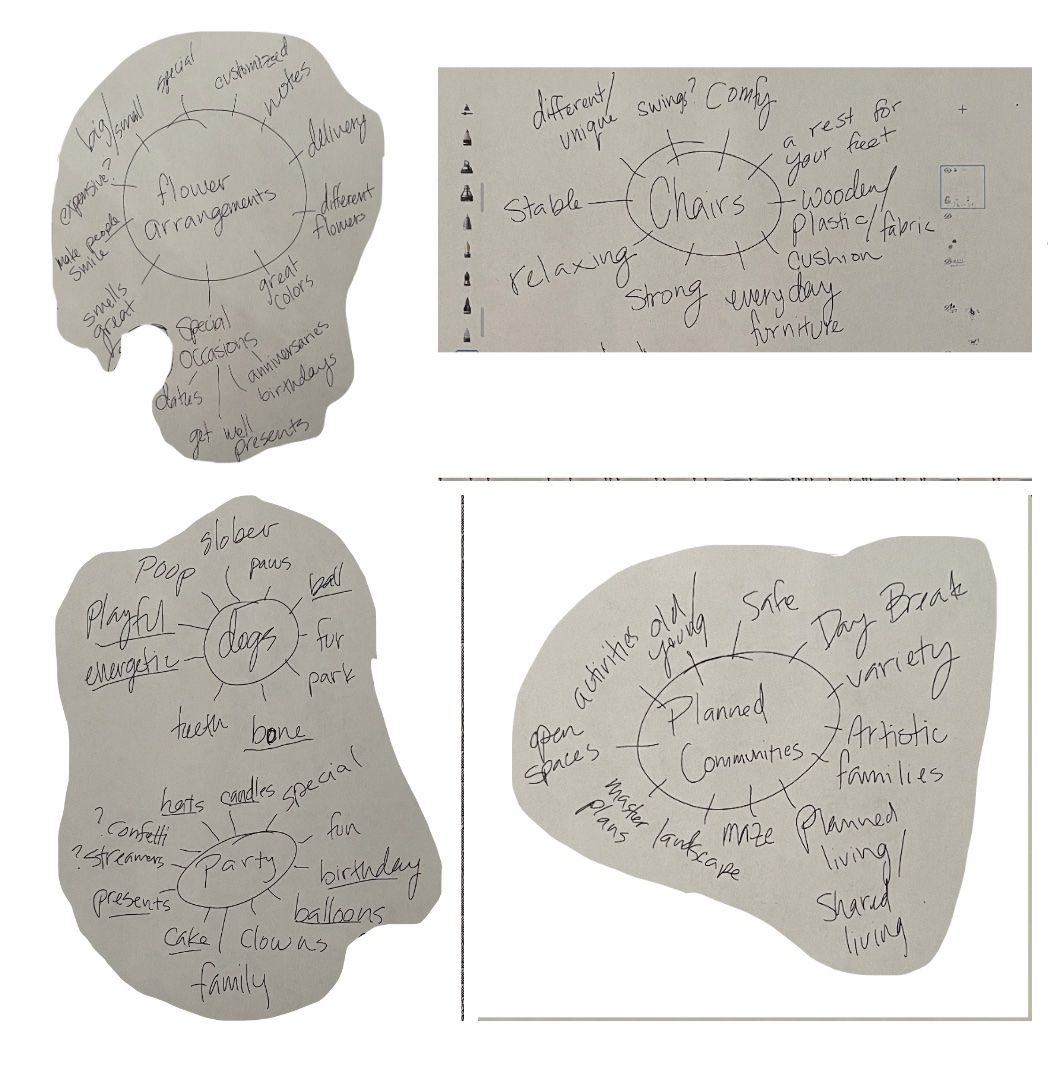 special
customized
notes
big/small
delivery
expensive?
flower
arrangements
different
flowers
make people
smile
great
colors
smells
great
special
occasions
anniversaries
birthdays
dates
get well
presents
different/
unique
swings?
Comfy
a rest for
your feet
Stable
Chairs
wooden/
plastic/fabric
cushion
relaxing
strong
everyday
furniture
slober
Poop
paws
ball
Playful
dogs
fur
energetic
park
teeth
bone
hats
candles
special
? confetti
fun
? streamers
Party
birthday
presents
balloons
cake
Clowns
family
activities
old/
young
Safe
Day Break
variety
Planned
Communities
open
spaces
Artistic
families
master
plans
landscape
maze
Planned
living/
Shared
living